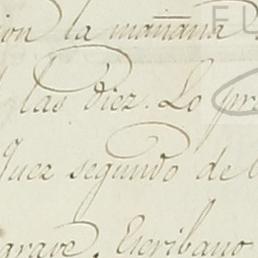 ion la mañana
las diez. Lo pr
Juez segundo de l
grave. Escribano